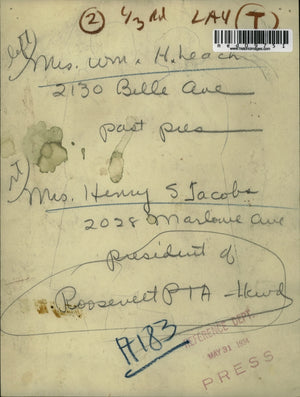 ② 1/3rd LAY (T)
www.historicimages.com
left
Mrs. Wm. H. Leach
2130 Belle Ave
past pres
rt
Mrs. Henry S Jacobs
2028 Marlowe Ave
president of
Roosevelt PTA - Lkwd
A183
REFERENCE DEPT.
MAY 31 1951
PRESS